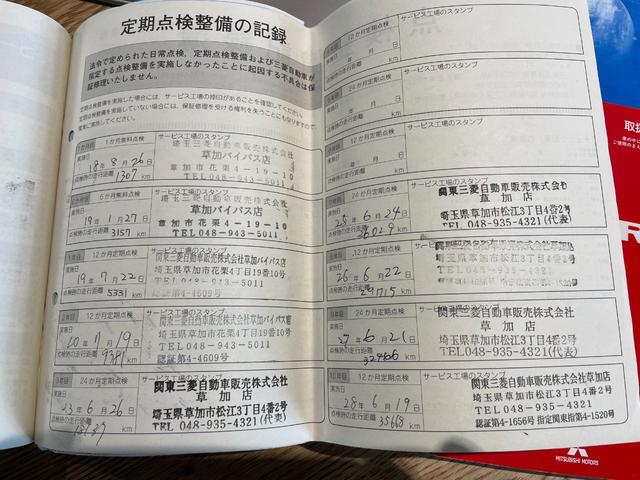 定期点検整備の記録
法令で定められた日常点検、定期点検整備および三菱自動車が
指定する点検整備を実施しなかったことに起因する不具合は保
証修理いたしません。
定期点検整備を実施した場合には、サービス工場の捺印があることを確認してください。
定期点検整備を実施していない場合には、保証修理を受ける権利を失うことにもなりますので、
確実に実施してください。
1か月無料点検 サービス工場のスタンプ
実施日
18年8月26日
点検時の走行距離
1307 km
埼玉三菱自動車販売株式会社
草加バイパス店
草加市花栗4-19-10
TEL048-943-5011
6か月無料点検 サービス工場のスタンプ
実施日
19年1月27日
点検時の走行距離
3157 km
埼玉三菱自動車販売株式会社
草加バイパス店
草加市花栗4-19-10
TEL.048-943-5011
12か月定期点検 サービス工場のスタンプ
実施日
19年7月22日
点検時の走行距離 5331 km
関東三菱自動車販売株式会社草加バイパス店
埼玉県草加市花栗4丁目19番10号
TEL 048-943-5011
認証第4-4609号
12か月定期点検 サービス工場のスタンプ
実施日
20年7月19日
点検時の走行距離
9381 km
関東三菱自動車販売株式会社草加バイパス店
埼玉県草加市花栗4丁目19番10号
TEL 048-943-5011
認証第4-4609号
24か月定期点検 サービス工場のスタンプ
実施日
23年6月26日
点検時の走行距離
km
関東三菱自動車販売株式会社
草加店
埼玉県草加市松江3丁目4番2号
TEL 048-935-4321(代表)
12か月定期点検 サービス工場のスタンプ
実施日
年 月 日
点検時の走行距離
km
サービス工場のスタンプ
年 月 日
km
24か月定期点検 サービス工場のスタンプ
実施日
25年6月24日
点検時の走行距離
km
関東三菱自動車販売株式会社
草加店
埼玉県草加市松江3丁目4番2号
TEL 048-935-4321(代表)
12か月定期点検 サービス工場のスタンプ
実施日
26年6月22日
点検時の走行距離
29715 km
関東三菱自動車販売株式会社
埼玉県草加市松江3丁目4番2号
24か月定期点検 サービス工場のスタンプ
実施日
27年6月21日
点検時の走行距離
km
関東三菱自動車販売株式会社
草加店
埼玉県草加市松江3丁目4番2号
TEL 048-935-4321(代表)
10年目 12か月定期点検 サービス工場のスタンプ
実施日
28年6月19日
点検時の走行距離
35668 km
関東三菱自動車販売株式会社
草加店
埼玉県草加市松江3丁目4番2号
TEL 048-935-4321
認証第4-1656号 指定関東指第4-1520号
取扱
MITSUBISHI MOTORS